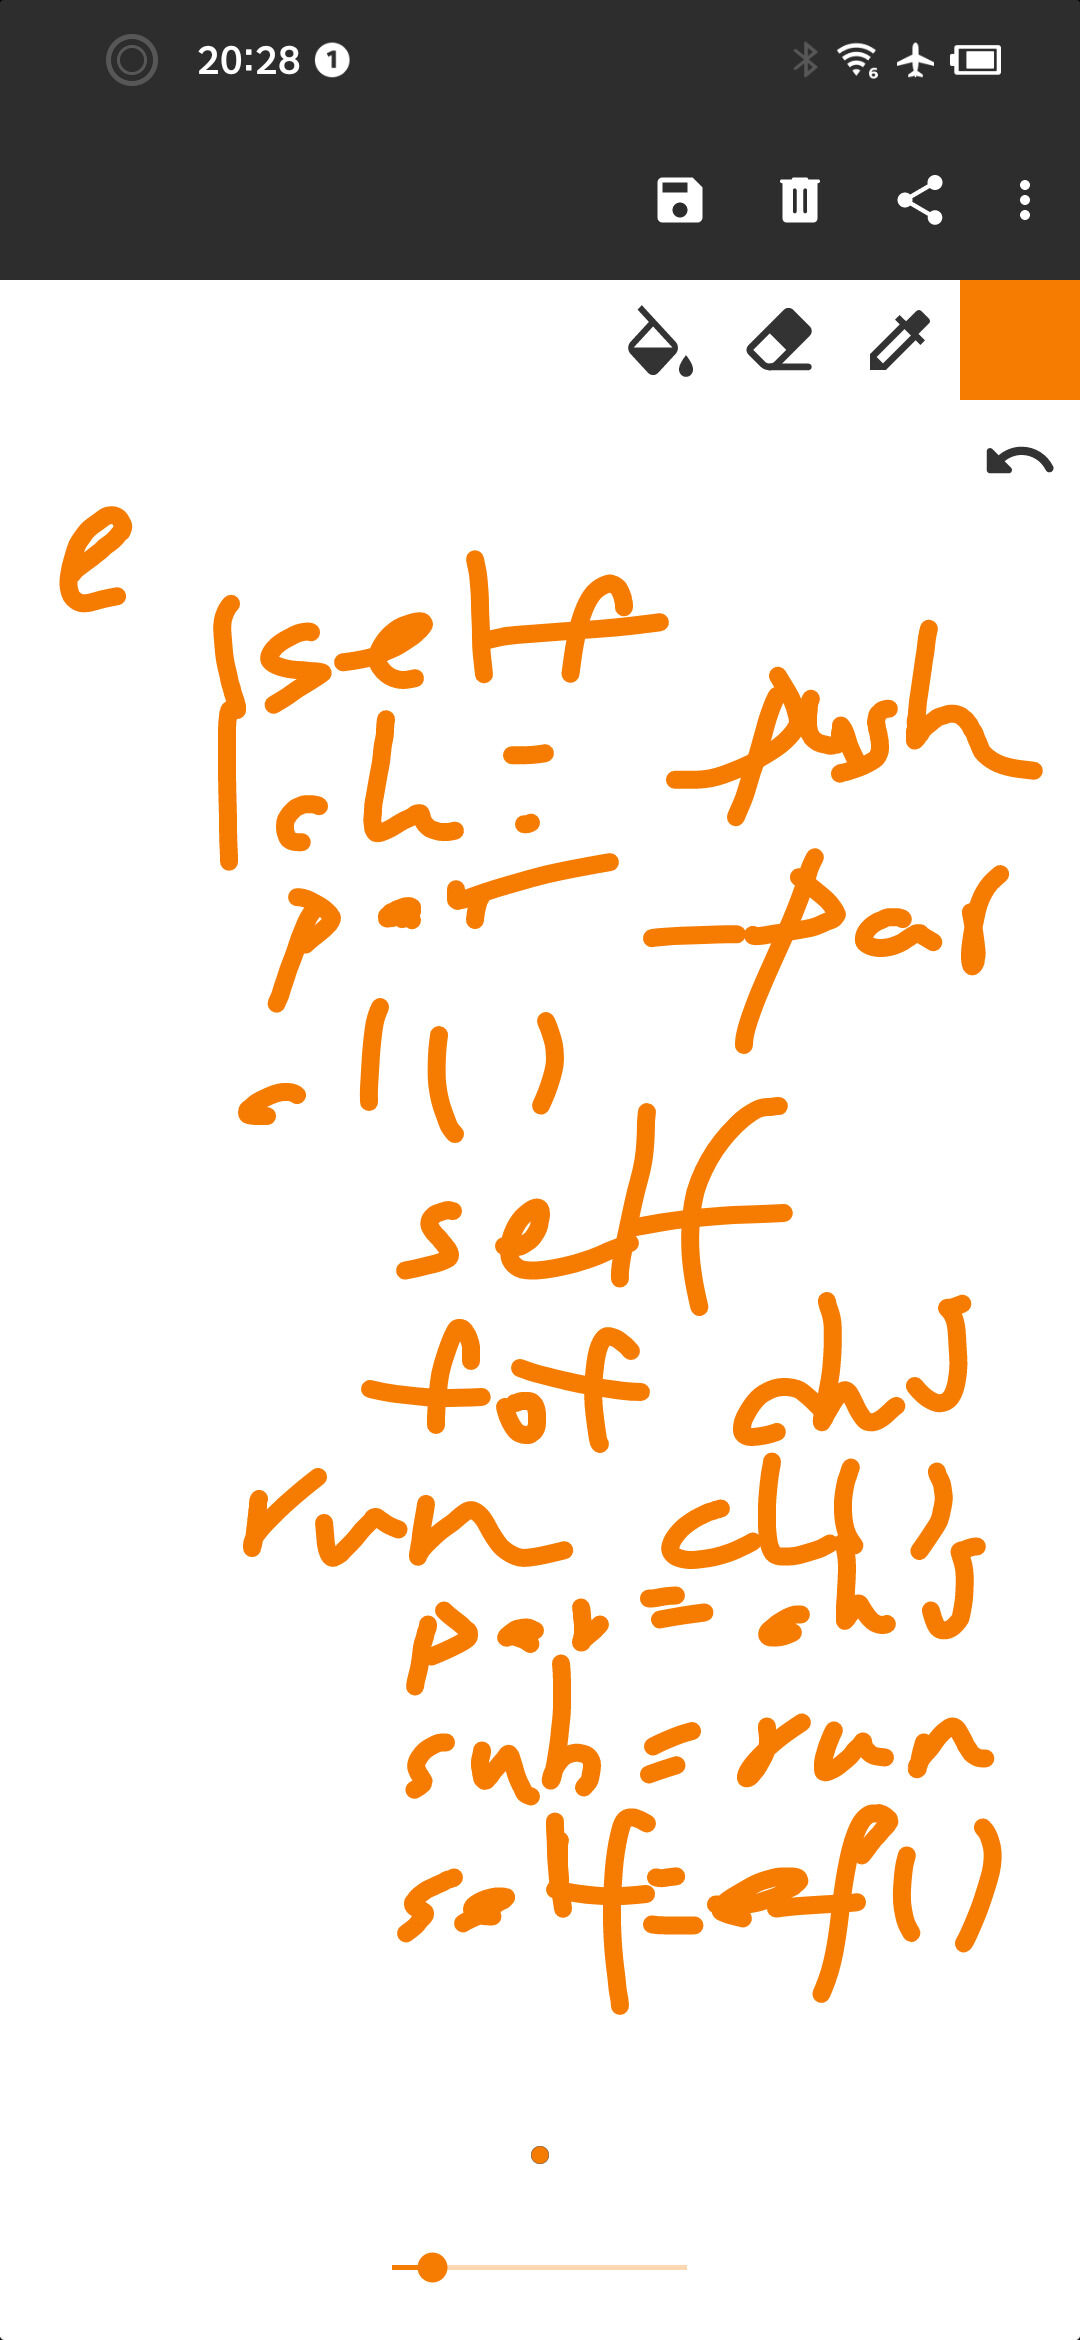 20:28 1
6
e
self
push
ch:
par
par
cl()
self
fof chJ
run cl()
par = chJ
sub = run
self = ef()